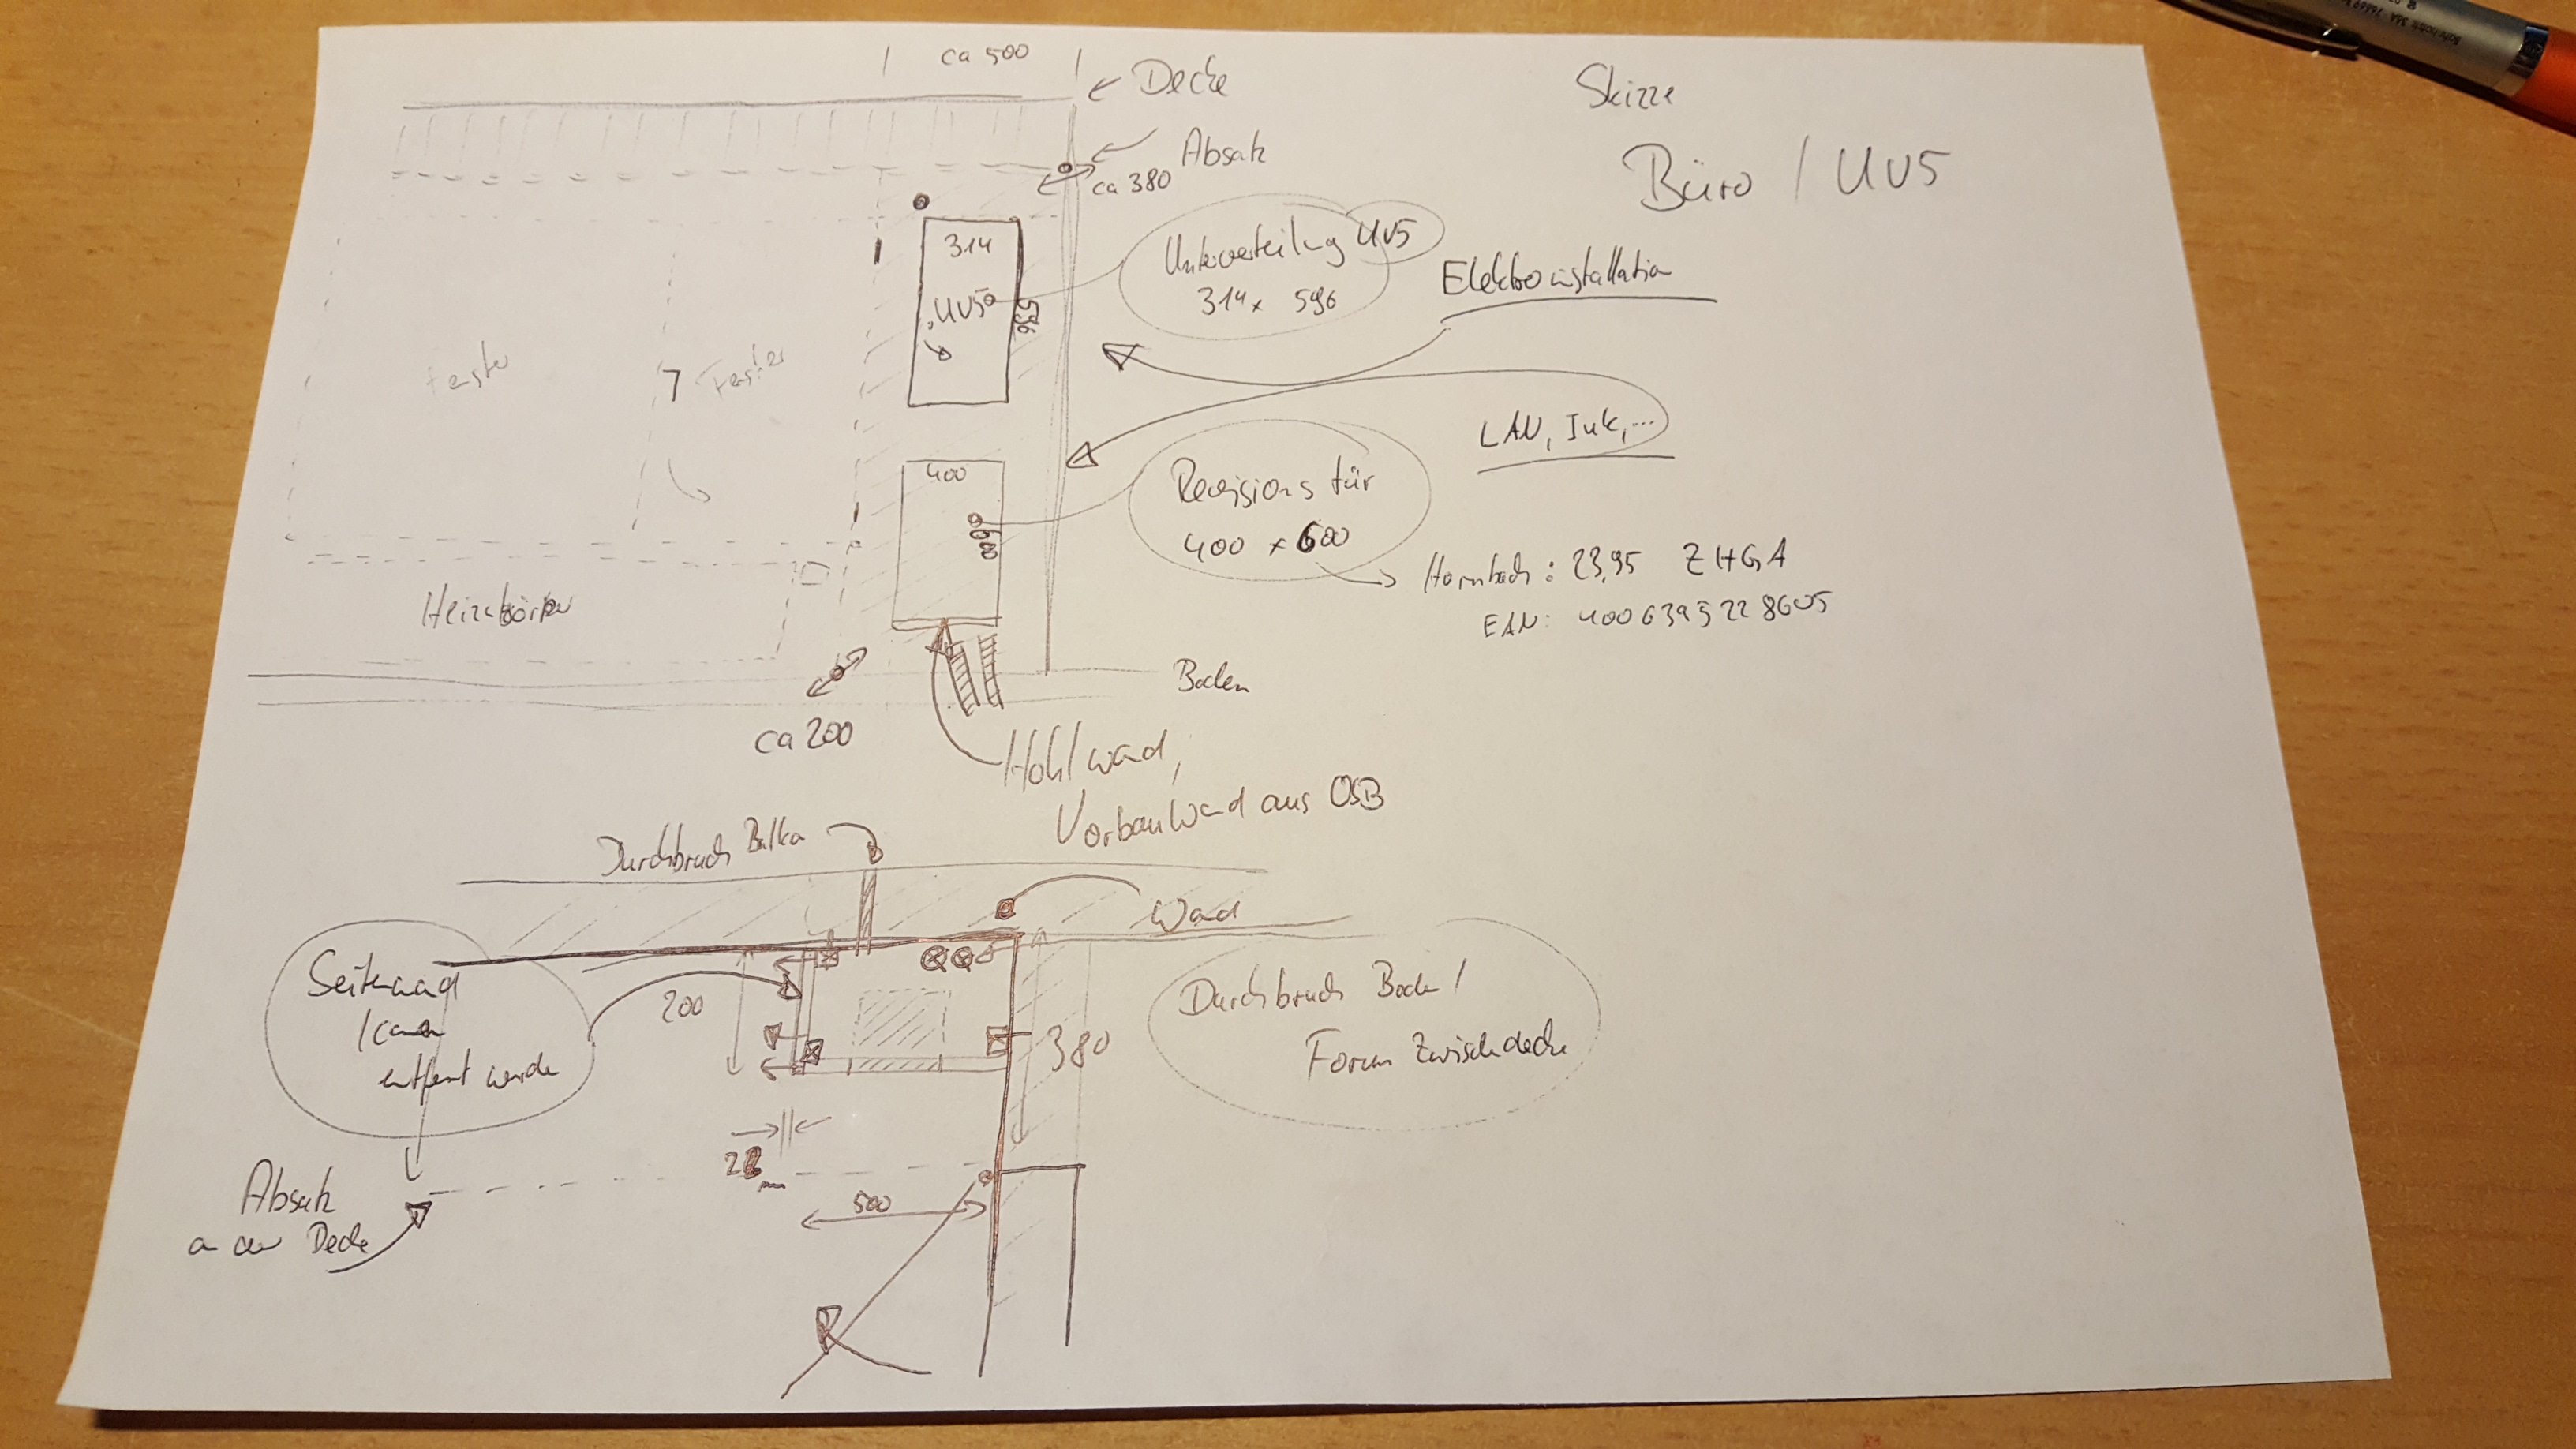 Skizze
Büro / UV5
ca 500
Decke
Absatz
ca 380
314
UV5
596
Unterverteilung UV5
314 x 596
Elektroinstallation
LAN, Tuk, ...
Fenster
Fenster
400
600
Revisionstür
400 x 600
Hornbach: 23,95 ZHGA
EAN: 4006395228605
Heizkörper
Boden
ca 200
Hohlwand,
Vorbauwand aus OSB
Durchbruch Balkon
Wand
Seitenwand
kann
entfernt werden
200
380
Durchbruch Boden /
Forum Zwischendecke
mm
500
Absatz
an der Decke